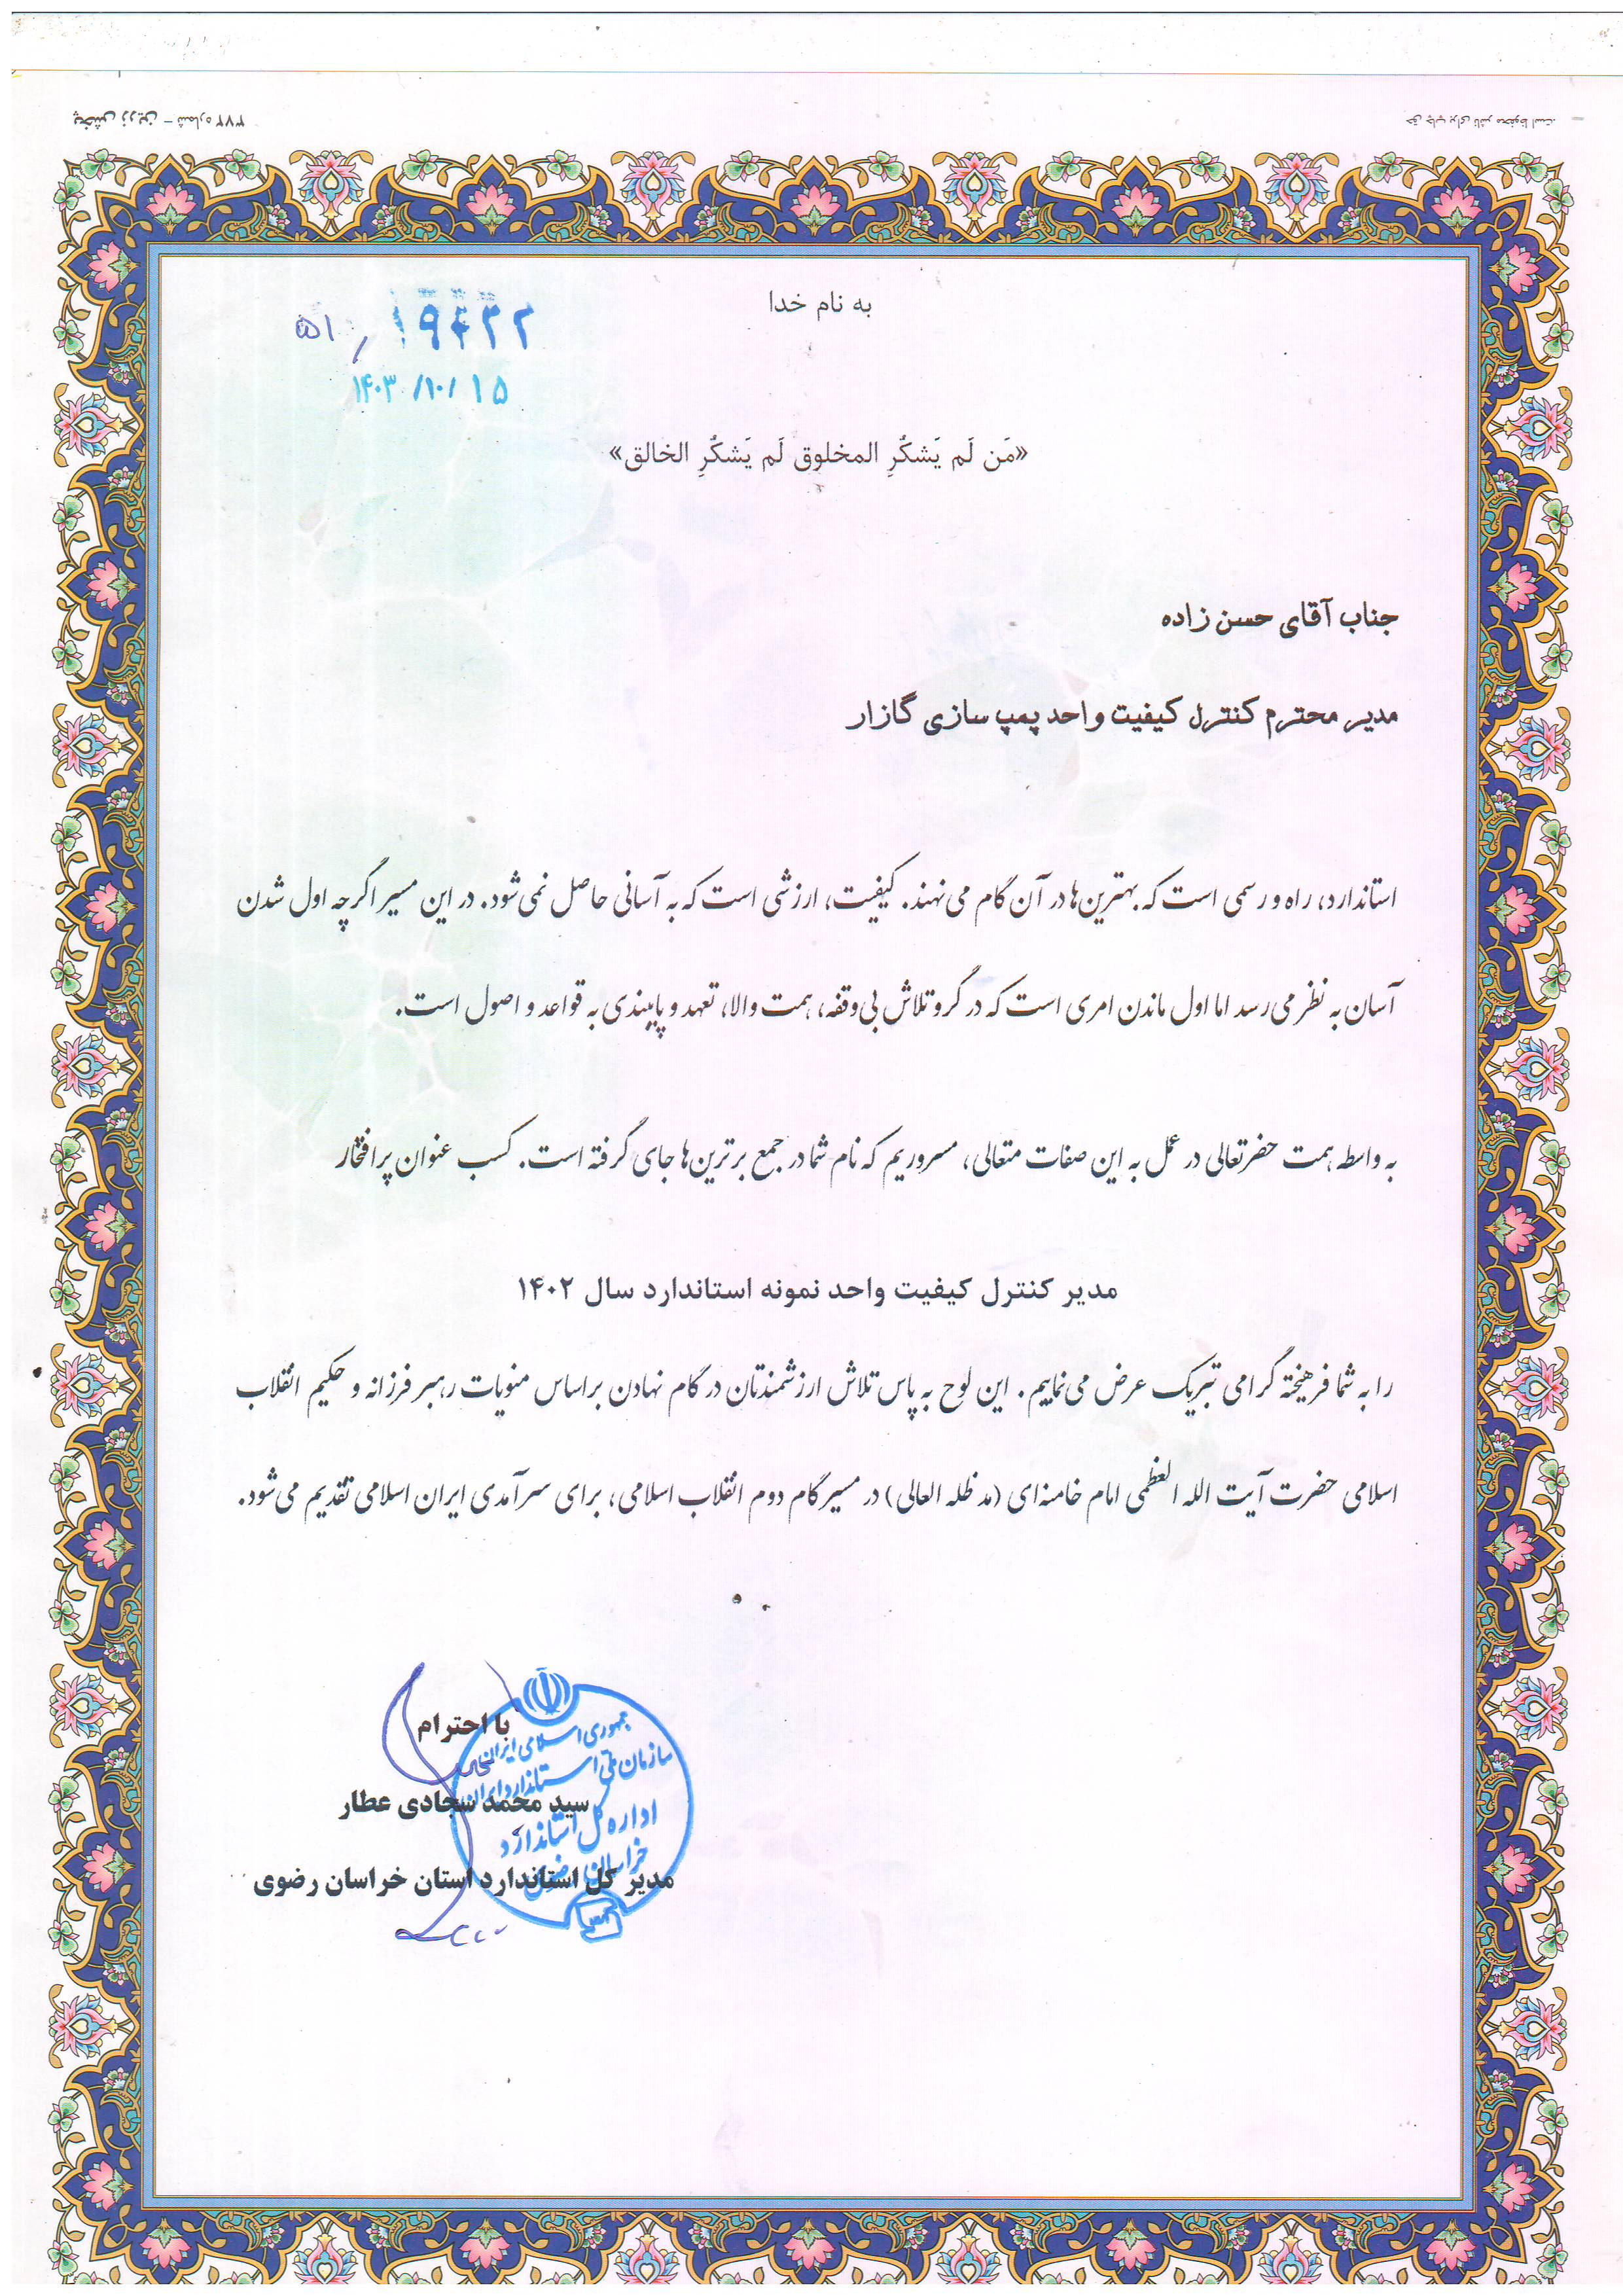 شماره ۳۷۲ – پخش زرین
حق چاپ برای ناشر محفوظ است.
به نام خدا
۵۱ / ۱۹۴۳۲
۱۴۰۳/۱۰/۱۵
«مَن لَم یَشکُرِ المخلوق لَم یَشکُرِ الخالق»
جناب آقای حسن زاده
مدیر محترم کنترل کیفیت واحد پمپ سازی گازار
استاندارد، راه و رسمی است که بهترین‌ها در آن گام می‌نهند. کیفیت، ارزشی است که به آسانی حاصل نمی‌شود. در این مسیر اگرچه اول شدن
آسان به نظر می‌رسد اما اول ماندن امری است که در گرو تلاش بی‌وقفه، همت والا، تعهد و پایبندی به قواعد و اصول است.
به واسطه همت حضرتعالی در عمل به این صفات متعالی، مسروریم که نام شما در جمع برترین‌ها جای گرفته است. کسب عنوان پرافتخار
مدیر کنترل کیفیت واحد نمونه استاندارد سال ۱۴۰۲
را به شما فرهیخته گرامی تبریک عرض می‌نماییم. این لوح به پاس تلاش ارزشمندتان در گام نهادن براساس منویات رهبر فرزانه و حکیم انقلاب
اسلامی حضرت آیت الله العظمی امام خامنه‌ای (مد ظله العالی) در مسیر گام دوم انقلاب اسلامی، برای سرآمدی ایران اسلامی تقدیم می‌شود.
با احترام
سید محمد سجادی عطار
مدیر کل استاندارد استان خراسان رضوی
جمهوری اسلامی ایران
سازمان ملی استاندارد ایران
اداره کل استاندارد
خراسان رضوی